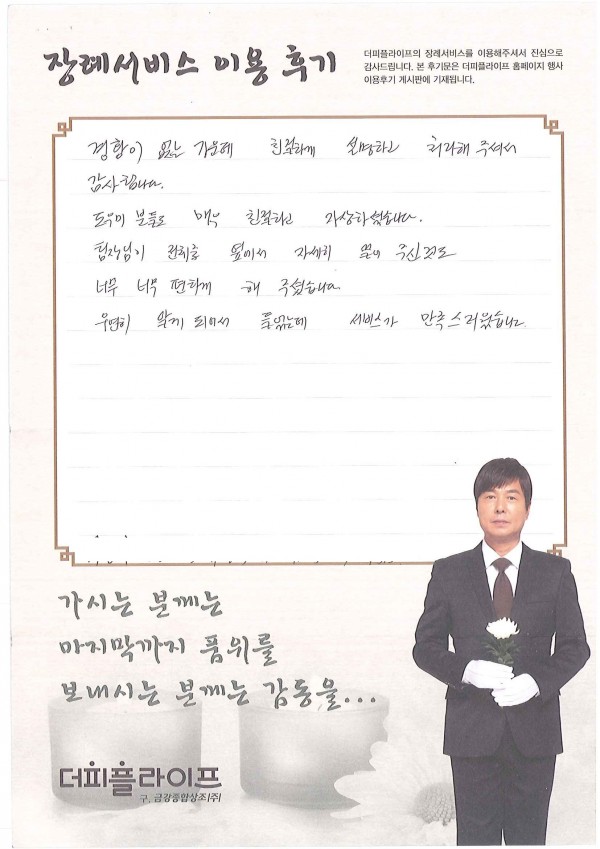 장례서비스 이용 후기
더피플라이프의 장례서비스를 이용해주셔서 진심으로
감사드립니다. 본 후기문은 더피플라이프 홈페이지 행사
이용후기 게시판에 기재됩니다.
경황이 없는 가운데 친절하게 설명하고 해주셔서
감사합니다.
도우미 분들도 매우 친절하고 자상하셨습니다.
팀장님이 옆에서 자세히 주신것도
너무 너무 편하게 해 주셨습니다
우연히 알게 되어서 서비스가 만족스러웠습니다
가시는 분께는
마지막까지 품위를
보내시는 분께는 감동을...
더피플라이프
구. 금강종합상조(주)